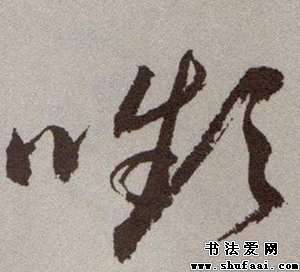 嚬
书法爱网
www.shufaai.com